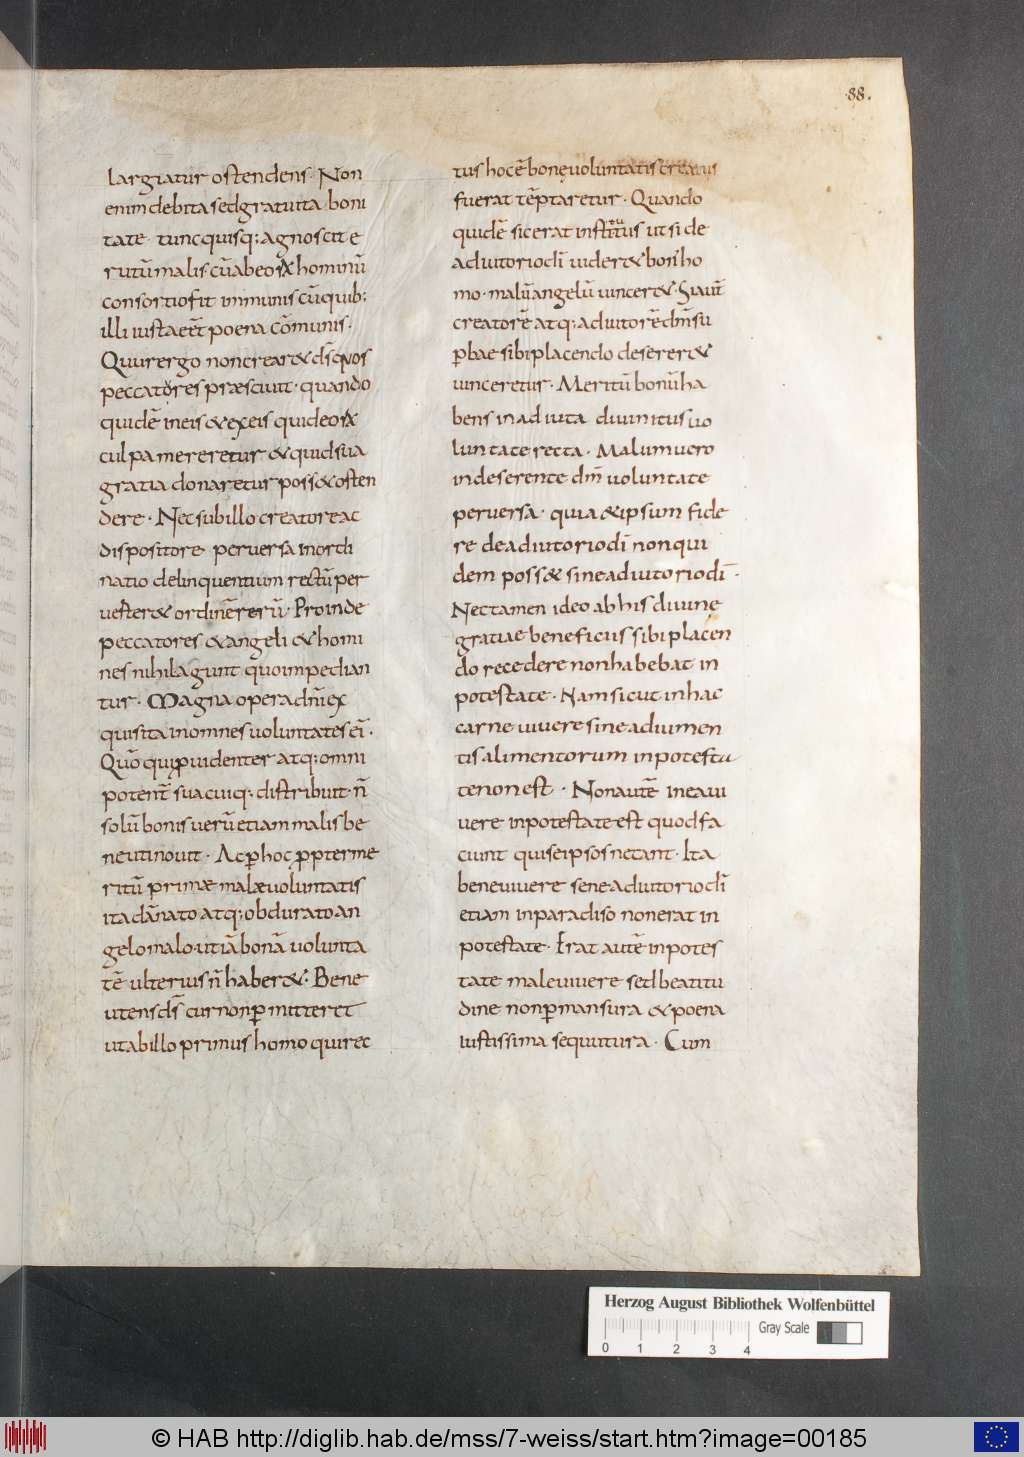 .88.
largiatur ostendens. Non
enim debita sed gratuita boni
tate tunc quisq; agnoscit e
rutū malis cū ab eor hominū
consortio fit inmunis cū quib;
illi iusta eēt poena cōmunis.
Quur ergo non crearet ds̄ quos
peccatores præsciuit. quando
quidē in eis & ex eis quid eor
culpa mereretur & quid sua
gratia donaretur poss& osten
dere. Nec sub illo creatore ac
dispositore peruersa inordi
natio delinquentium rectū per
uerter& ordinē rerū. Proinde
peccatores & angeli & homi
nes nihil agunt quo impedian
tur. Magna opera dn̄i ex
quisita in omnes uoluntates ei.
Quō qui ꝓuidenter atq; omni
potent̄ sua cuiq; distribuit. n̄
solū bonis uerū etiam malis be
ne uti nouit. Ac ꝑ hoc ꝓpter me
ritū primæ malæ uoluntatis
ita dānato atq; obdurato an
gelo malo. ut iā bonā uolunta
tē ulterius n̄ haber&. Bene
utens ds̄ cur non ꝑmitteret
ut ab illo primus homo qui rec
tus hoc ē bonę uoluntatis creatus
fuerat tēptaretur. Quando
quidē sic erat institutus ut si de
adiutorio dī uider& bon' ho
mo. malū angelū uincer&. Si aut̄
creatorē atq; adiutorē dm̄ su
ꝑbae sibi placendo deserer&
uinceretur. Meritū bonū ha
bens in adiuta diuinitus uo
luntate recta. Malum uero
in deserente dm̄ uoluntate
peruersa. quia & ipsum fide
re de adiutorio dī non qui
dem poss& sine adiutorio dī.
Nec tamen ideo ab his diuinę
gratiae beneficiis sibi placen
do recedere non habebat in
potestate. Nam sicut in hac
carne uiuere sine adiumen
tis alimentorum in potesta
te non est. Non autē in ea ui
uere in potestate est quod fa
ciunt qui seipsos necant. Ita
bene uiuere sene adiutorio dī
etiam in paradiso non erat in
potestate. Erat autē in potes
tate male uiuere sed beatitu
dine non ꝑmansura & poena
iustissima sequutura. Cum
Herzog August Bibliothek Wolfenbüttel
Gray Scale
0 1 2 3 4
© HAB http://diglib.hab.de/mss/7-weiss/start.htm?image=00185